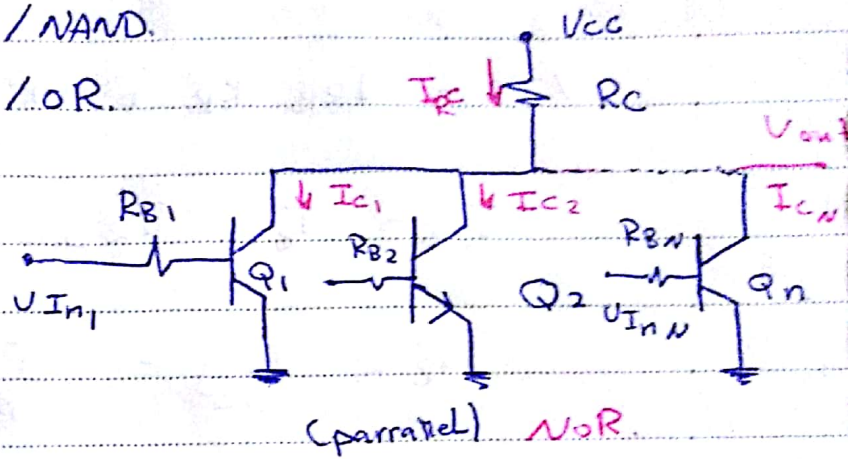 / NAND.
/ OR.
VCC
IRC
RC
Vout
RB1
IC1
IC2
ICN
RB2
RBN
Q1
Q2
Qn
VIn1
VInN
(parrallel) NOR.